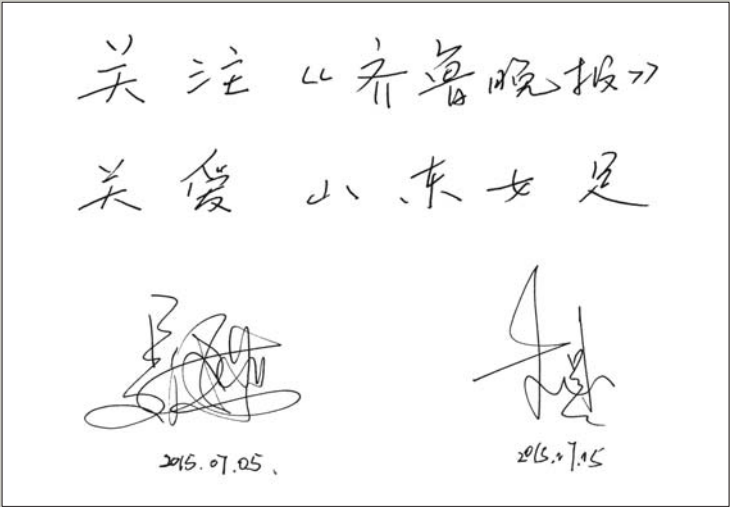 关注《齐鲁晚报》
关爱山东女足
2015.07.05
2015.7.15